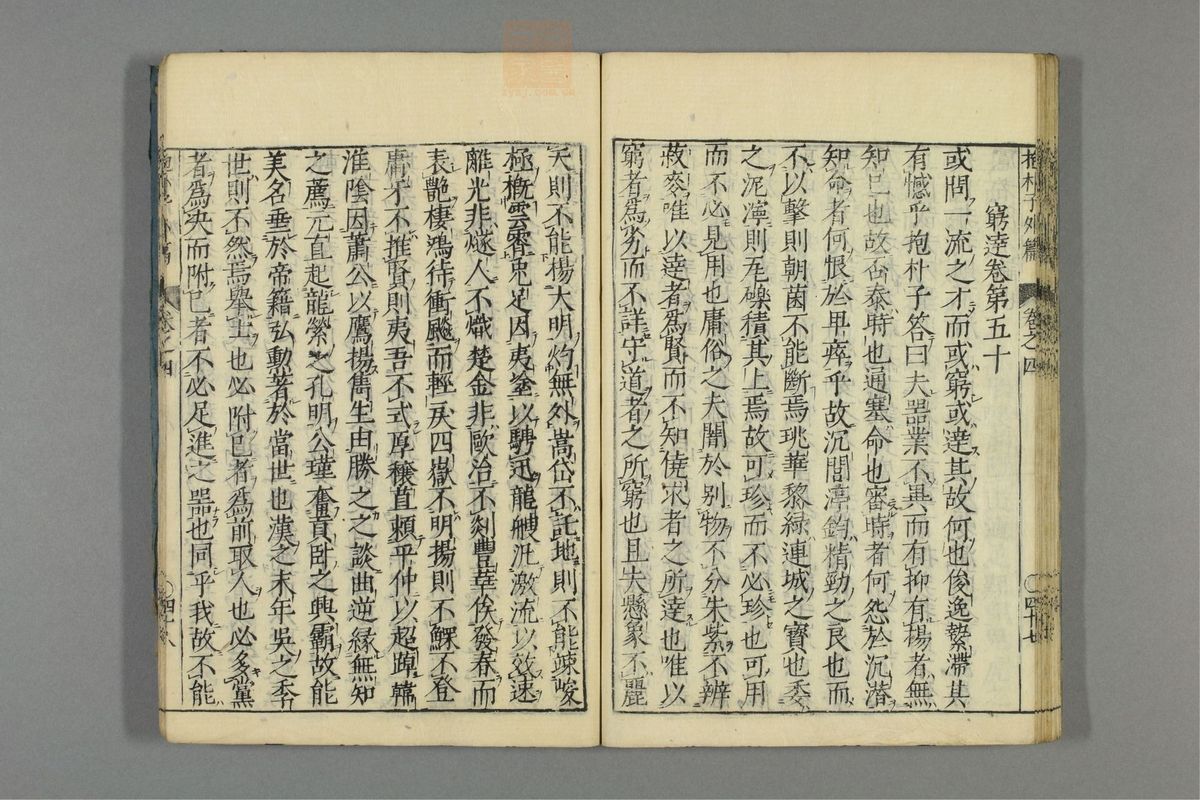 抱朴子外篇 卷之四 四十七
窮達卷第五十
或問一流之才而或窮或達其故何也俊逸縶滯其
有憾乎抱朴子答曰夫器業不異而有抑有揚者無
知已也故否泰時也通塞命也審時者何怨於沉潜
知命者何恨於卑瘁乎故沉閭渟鈞精勁之良也而
不以擊則朝菌不能斷焉珧華黎綠連城之寳也委
之泥濘則瓦礫積其上焉故可珍而不必珍也可用
而不必見用也庸俗之夫闇於别物不分朱紫不辨
菽麥唯以達者爲賢而不知僥求者之所達也唯以
窮者爲劣而不詳守道者之所窮也且夫懸象不麗
天則不能揚大明灼無外嵩岱不託地則不能竦峻
極槪雲霄兎足因夷塗以騁迅龍艘汎激流以效速
離光非燧人不熾楚金非歐冶不剡豐華俟發春而
表艷棲鴻待衝飈而輕戾四嶽不明揚則不鰥不登
庸牙不推賢則夷吾不式厚穰苴頼平仲以超踔韓
淮陰因蕭公以鷹揚雋生由勝之之談曲逆緣無知
之薦元直起龍縈之孔明公瑾奮貢卧之興霸故能
美名垂於帝籍弘勳著於當世也漢之末年吳之季
世則不然焉舉士也必附已者爲前取人也必多黨
者爲决而附已者不必足進之器也同乎我故不能
卷之四 四十八